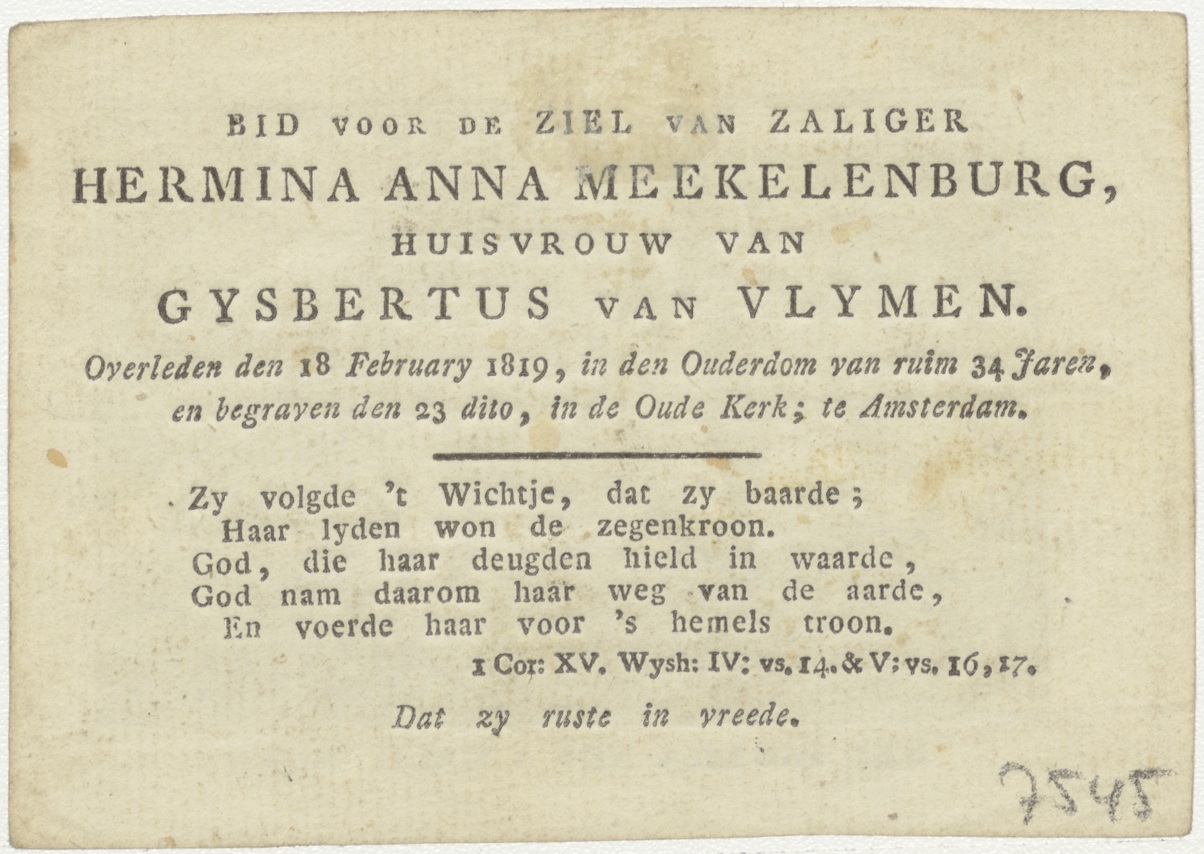 BID VOOR DE ZIEL VAN ZALIGER
HERMINA ANNA MEEKELENBURG,
HUISVROUW VAN
GYSBERTUS VAN VLYMEN.
Overleden den 18 February 1819, in den Ouderdom van ruim 34 Jaren,
en begraven den 23 dito, in de Oude Kerk; te Amsterdam.
Zy volgde 't Wichtje, dat zy baarde;
Haar lyden won de zegenkroon.
God, die haar deugden hield in waarde,
God nam daarom haar weg van de aarde,
En voerde haar voor 's hemels troon.
1 Cor: XV. Wysh: IV: vs. 14. & V: vs. 16, 17.
Dat zy ruste in vreede.
7545